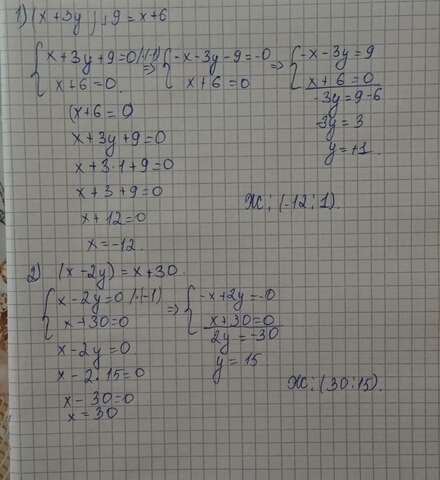 1) (x + 3y), 9 = x + 6
{ x + 3y + 9 = 0 |·(-1) ⇒ { -x - 3y - 9 = -0 ⇒ { -x - 3y = 9
x + 6 = 0. x + 6 = 0 x + 6 = 0
-3y = 9 - 6
-3y = 3
y = +1.
{x + 6 = 0
x + 3y + 9 = 0
x + 3·1 + 9 = 0
x + 3 + 9 = 0
x + 12 = 0
x = -12.
Ж: (-12; 1).
2) (x - 2y) = x + 30.
{ x - 2y = 0 |·(-1) ⇒ { -x + 2y = -0
x - 30 = 0 x + 30 = 0
2y = -30
y = 15
x - 2y = 0
x - 2·15 = 0
x - 30 = 0
x = 30
Ж: (30; 15).